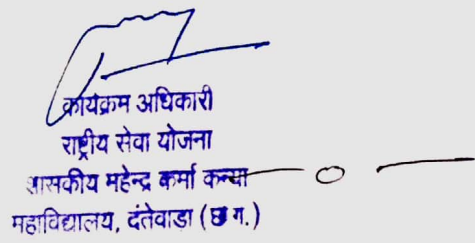 कार्यक्रम अधिकारी
राष्ट्रीय सेवा योजना
शासकीय महेन्द्र कर्मा कन्या
महाविद्यालय, दंतेवाडा (छ ग.)